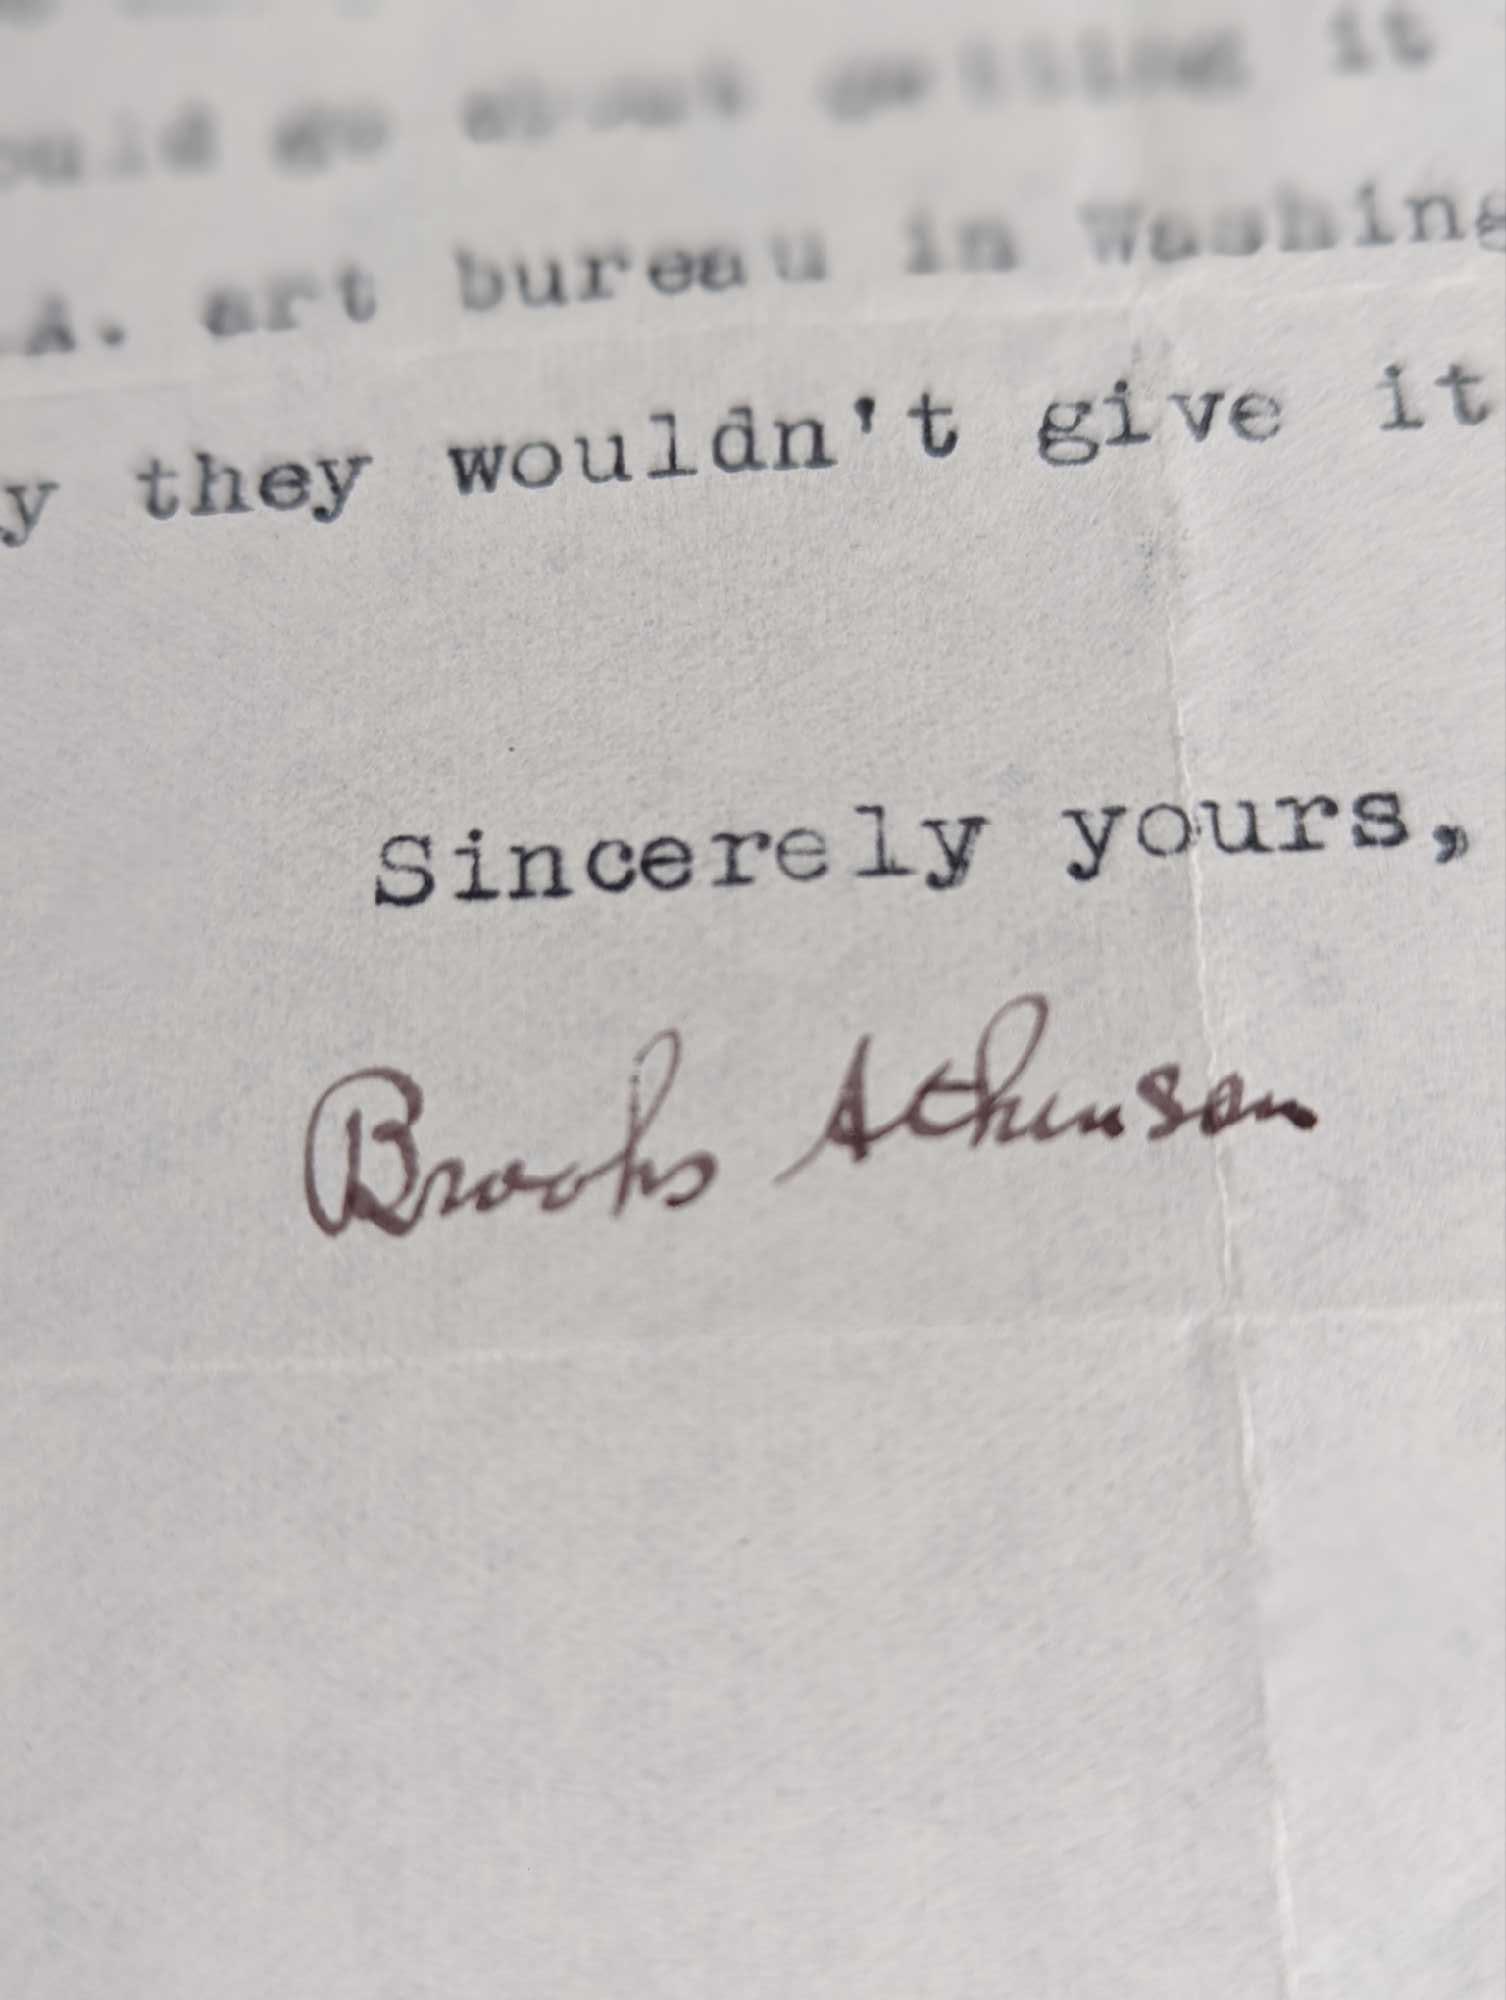 go about getting it
A. art bureau in Washing
y they wouldn't give it
Sincerely yours,
Brooks Atkinson